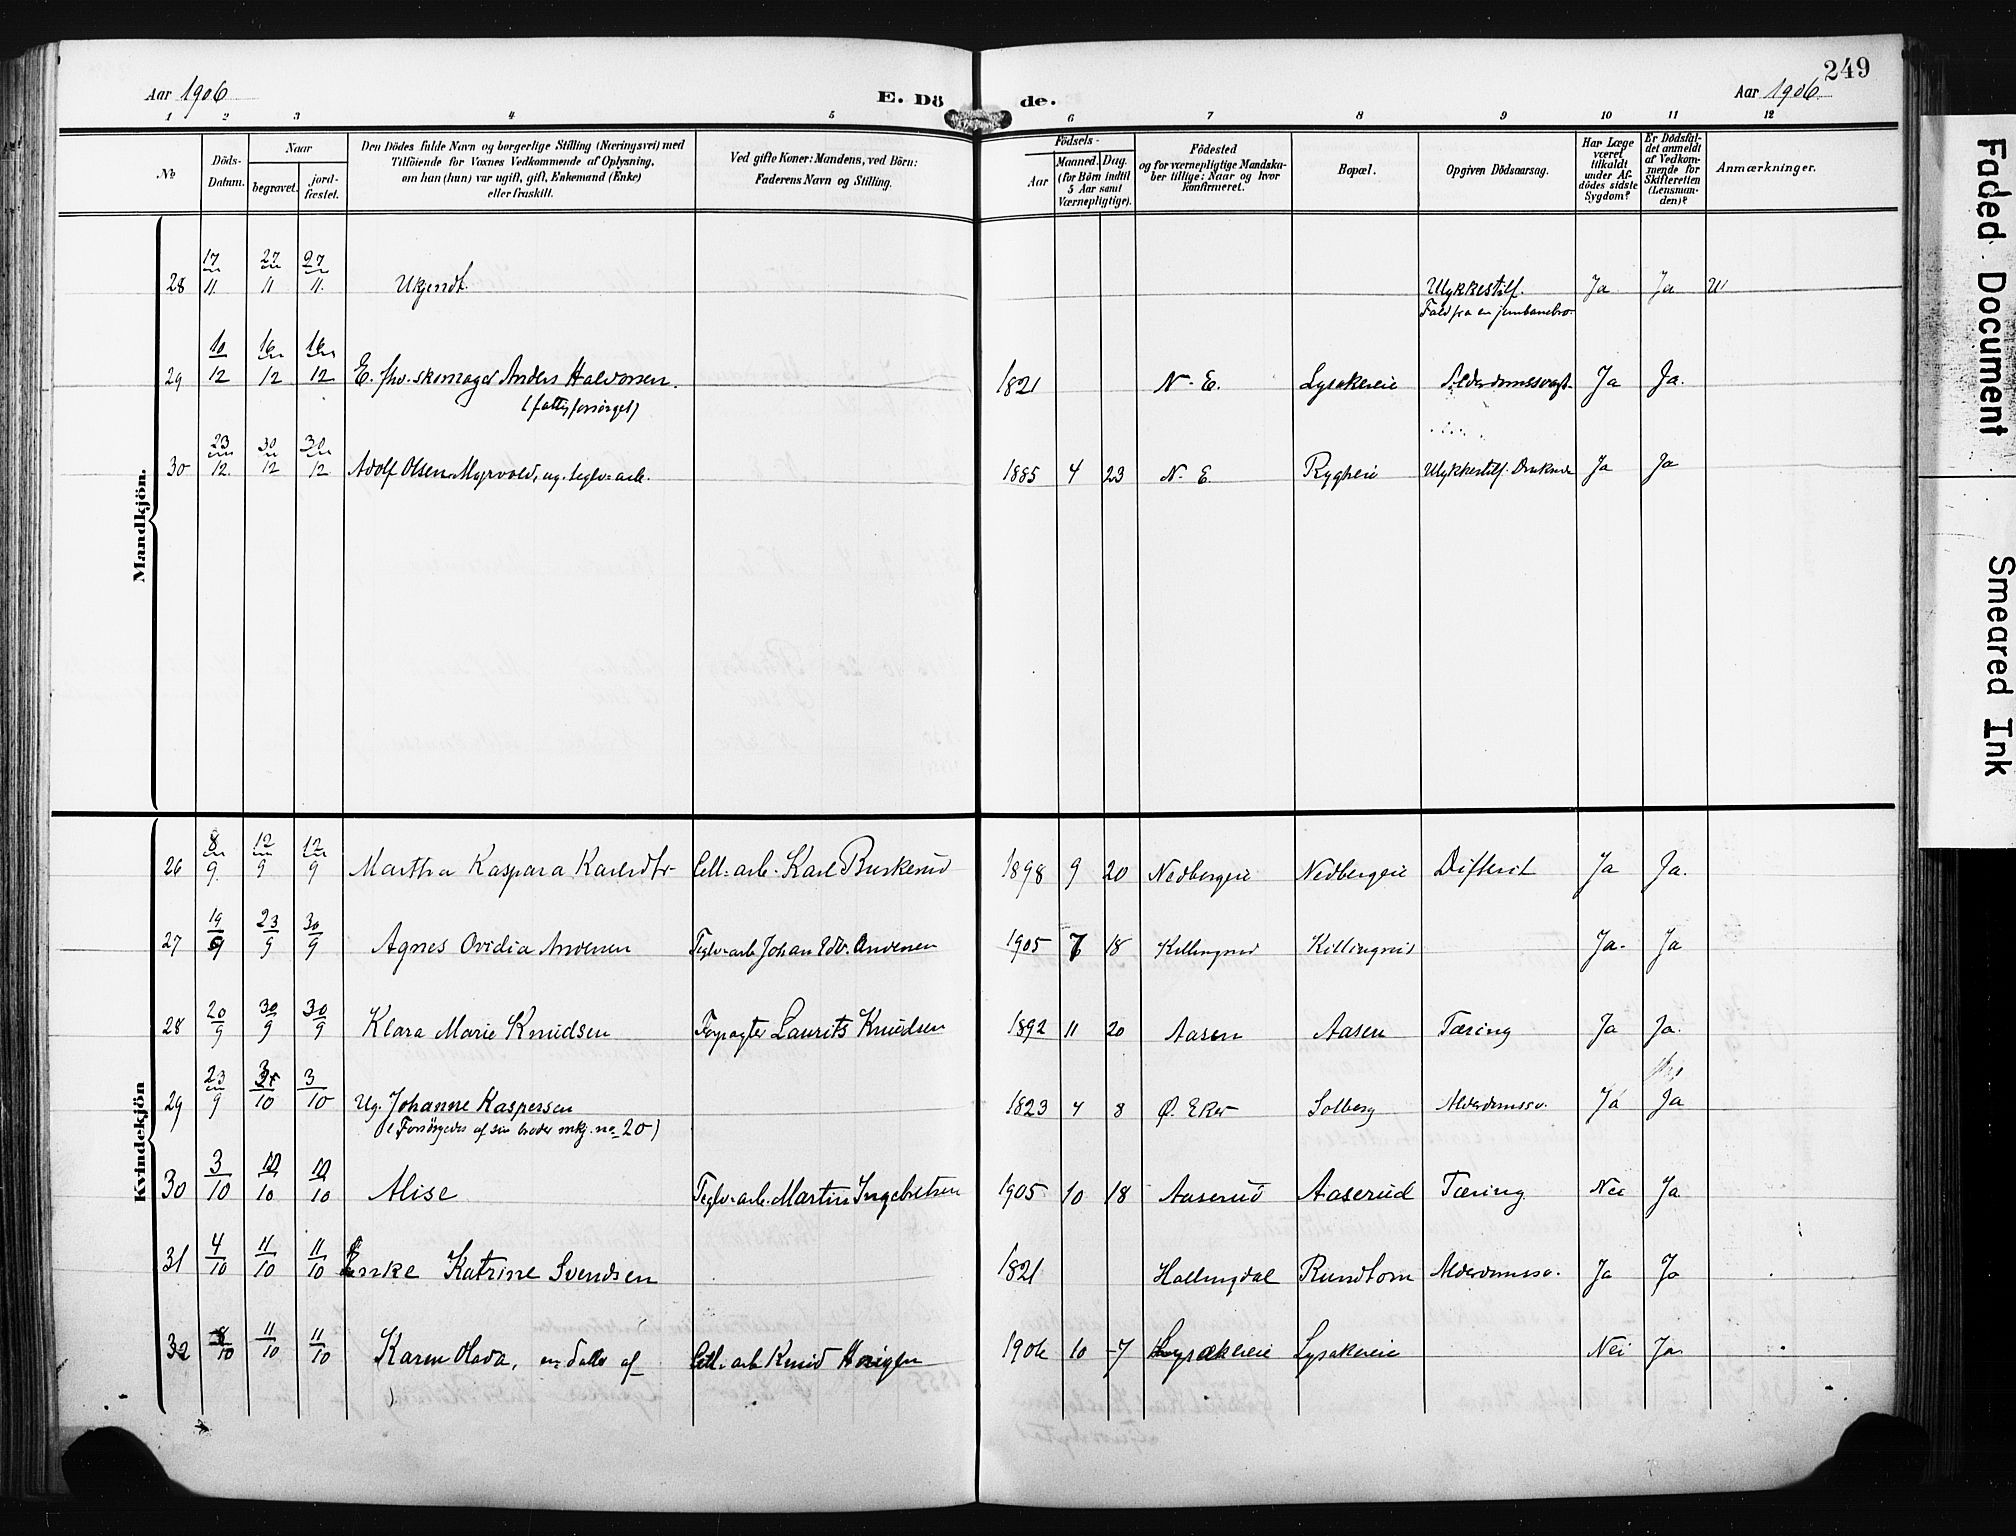 Aar 1906
E. Dö
de.
Aar 1906.
249
1 2 3 4 5 6 7 8 9 10 11 12
No
Döds-
Datum.
Naar
begravet.
jord-
fæstet.
Den Dödes fulde Navn og borgerlige Stilling (Næringsvei) med
Tilföiende for Voxnes Vedkommende af Oplysning,
om han (hun) var ugift, gift, Enkemand (Enke)
eller fraskilt.
Ved gifte Koner: Mandens, ved Börn:
Faderens Navn og Stilling.
Födsels-
Aar
Maaned. Dag.
(for Börn indtil
5 Aar samt
Værnepligtige).
Födested
og for værnepligtige Mandska-
ber tillige: Naar og hvor
konfirmeret.
Bopæl.
Opgiven Dödsaarsag.
Har Læge
været
tilkaldt
under Af-
dödes sidste
Sygdom?
Er Dödsfal-
det anmeldt
af Vedkom-
mende for
Skifteretten
(Lensman-
den)?
Anmærkninger.
Mandkjön.
28 17/11 27/11 27/11 Ukjendt Ulykkestilf. Ja Ja
Fald fra en jernbanebro.
29 10/12 16/12 16/12 E. fhv. skomager Anders Halvorsen. 1821 N. E. Lysakereie Alderdomssvagh. Ja Ja.
(fattigforsörget)
30 23/12 30/12 30/12 Adolf Olsen Myrvold, ug. teglv. arb. 1885 4 23 N. E. Ryggheie Ulykkestilf. Druknede Ja Ja
Kvindekjön
26 8/9 12/9 12/9 Martha Kaspara Karlsdtr Cell. arb. Karl Buskerud 1898 9 20 Nedbergeie Nedbergeie Difterit Ja Ja.
27 19/9 23/9 30/9 Agnes Ovidia Andersen Teglv. arb Johan Edv. Andersen 1905 7 18 Killingrud Killingrud Ja. Ja
28 20/9 30/9 30/9 Klara Marie Knudsen Forpagter Laurits Knudsen 1892 11 20 Aasen Aasen Tæring Ja Ja.
29 23/9 3/10 3/10 Ug. Johanne Kaspersen 1823 4 8 Ø. Eker Solberg Alderdomssv. Ja Ja
(Forsörgedes af sin broder mkj. no 20)
30 3/10 10/10 10/10 Alise Teglv. arb. Martin Ingebretsen 1905 10 18 Aaserud Aaserud Tæring Nei Ja
31 4/10 11/10 11/10 Enke Katrine Svendsen 1821 Hallingdal Rundtom Alderdomssv. Ja Ja
32 8/10 11/10 11/10 Karen Olava, en datter af Cell. arb Knud 1906 10 7 Lysakereie Lysakereie Nei Ja
Faded Document
Smeared Ink